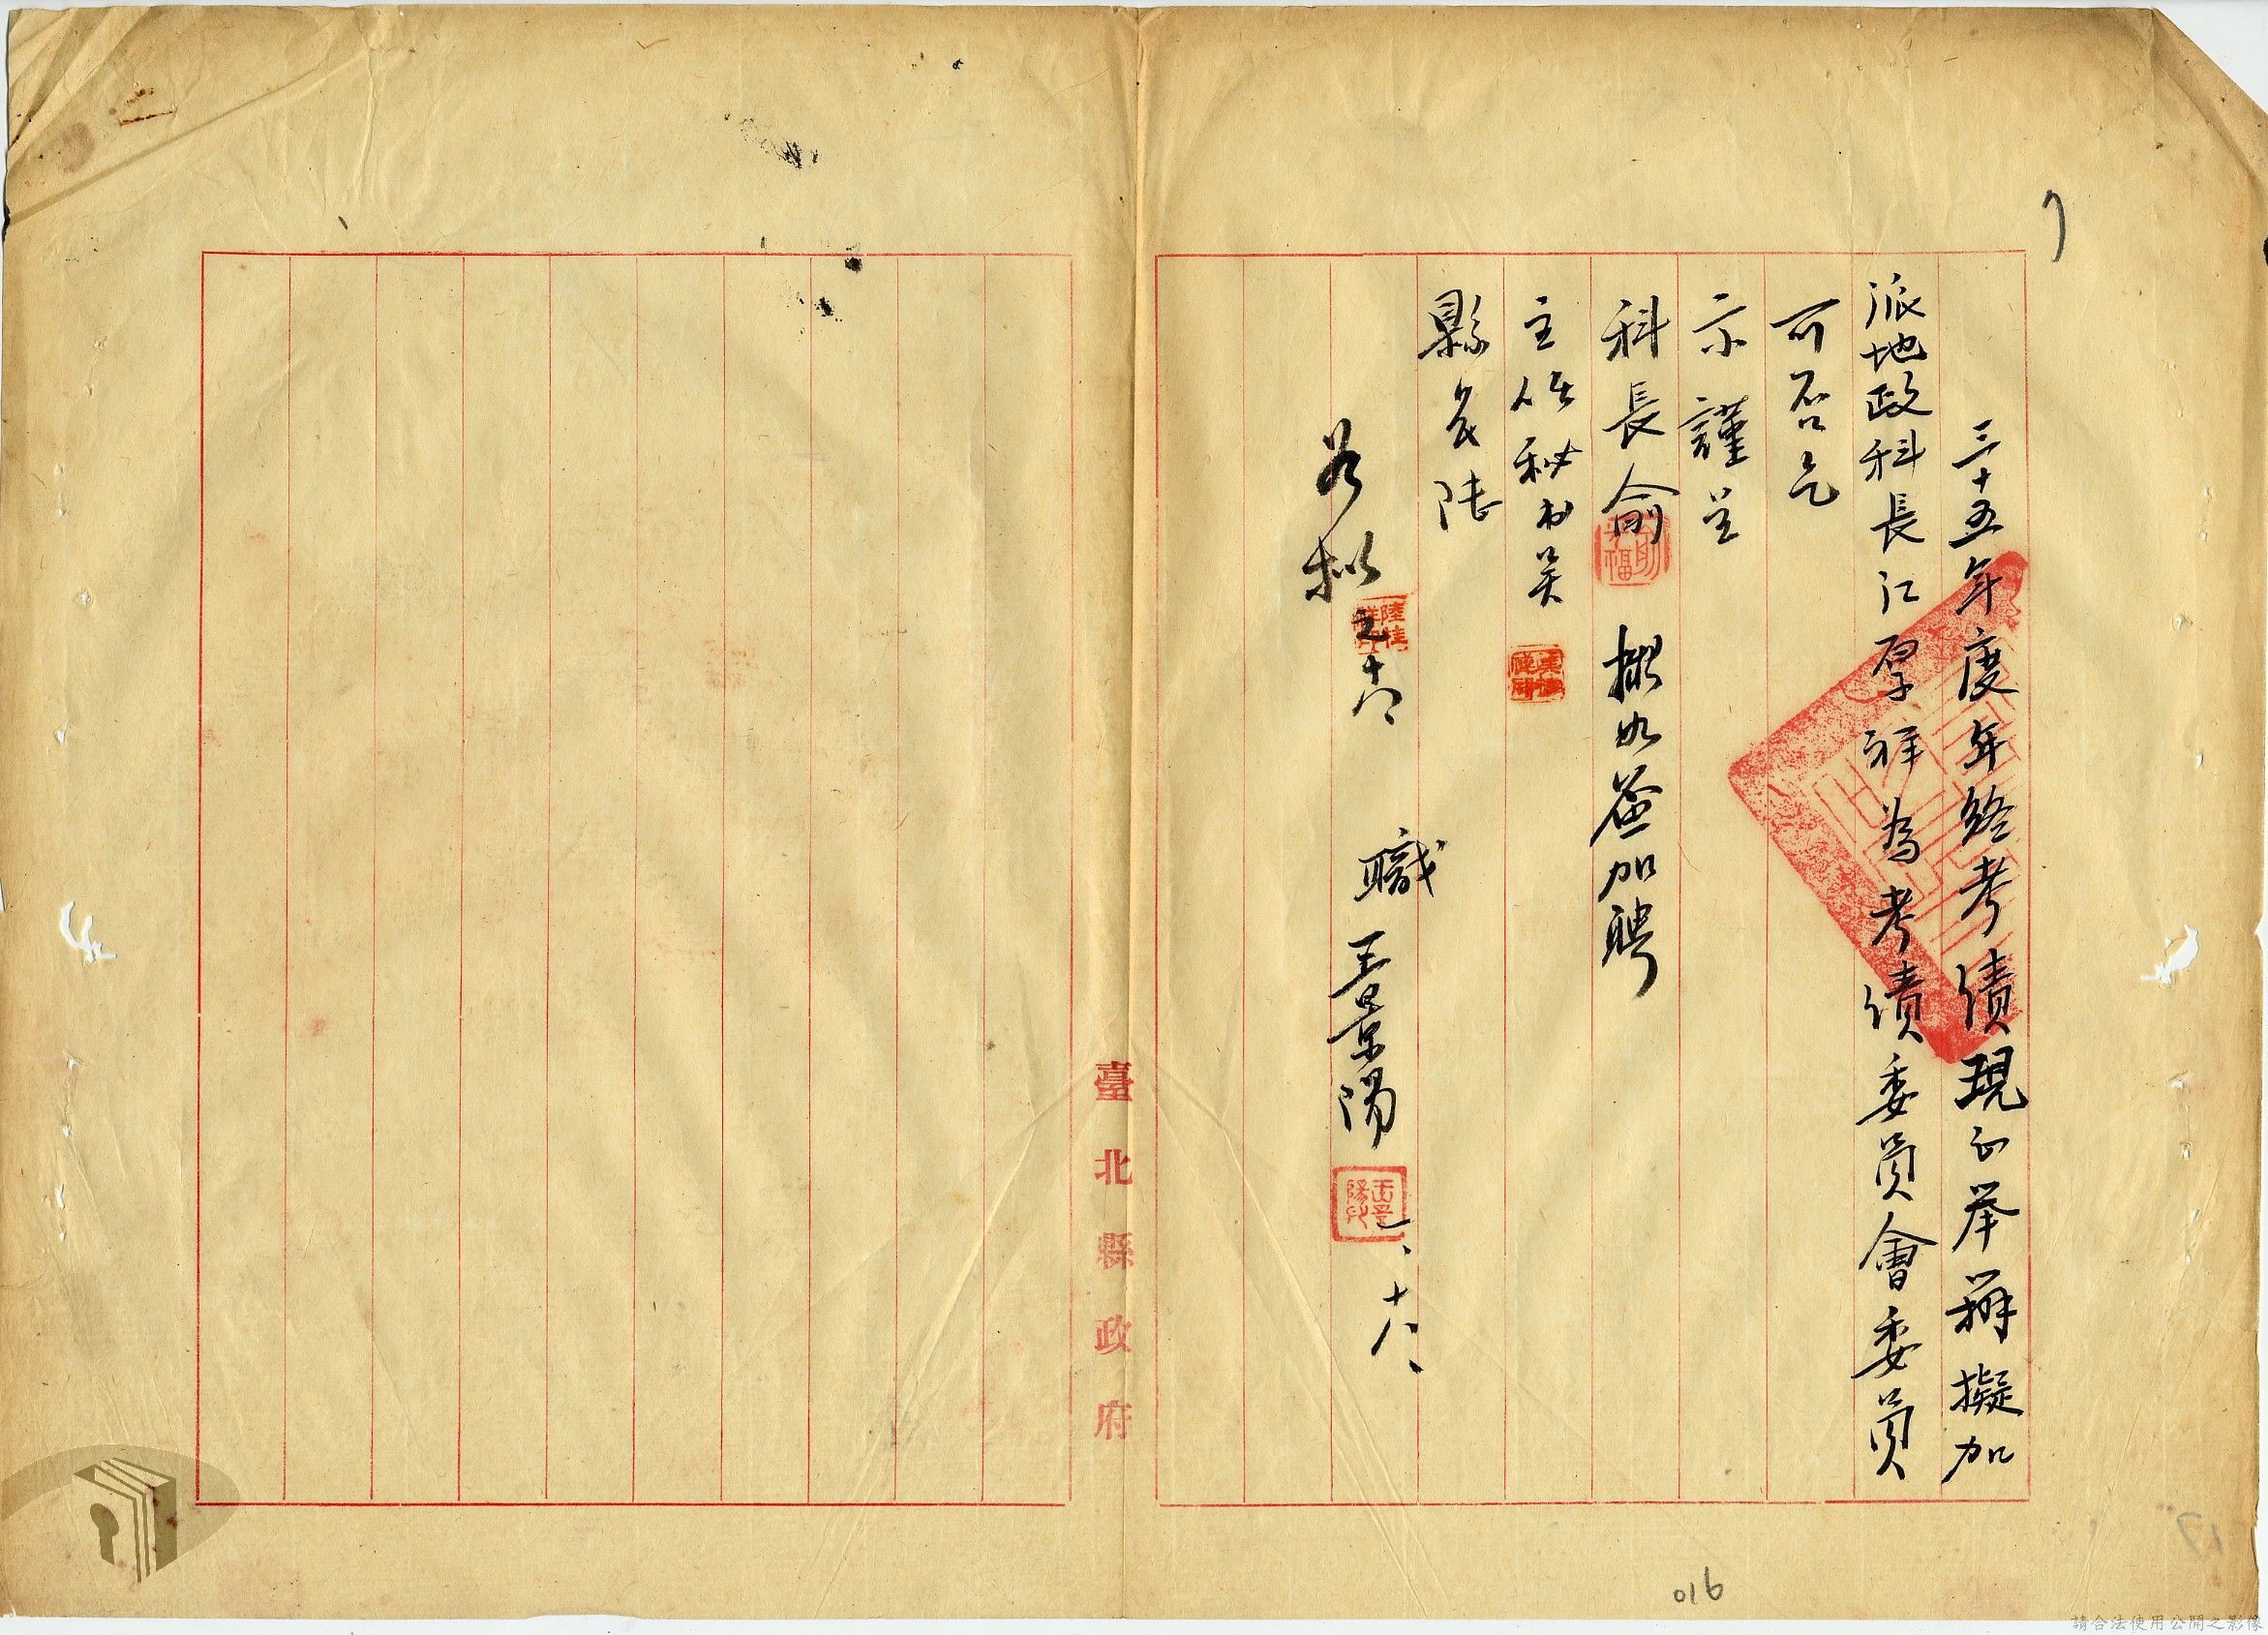 三十五年度年終考績現正举辦擬加
派地政科長江厚祥為考績委員會委員
可否乞
示謹呈
科長俞
擬如簽加聘
主任秘書吴
縣長陸
如擬
一、十八
職王景陽
一、十八、
臺北縣政府
016
17
請合法使用公開之影像